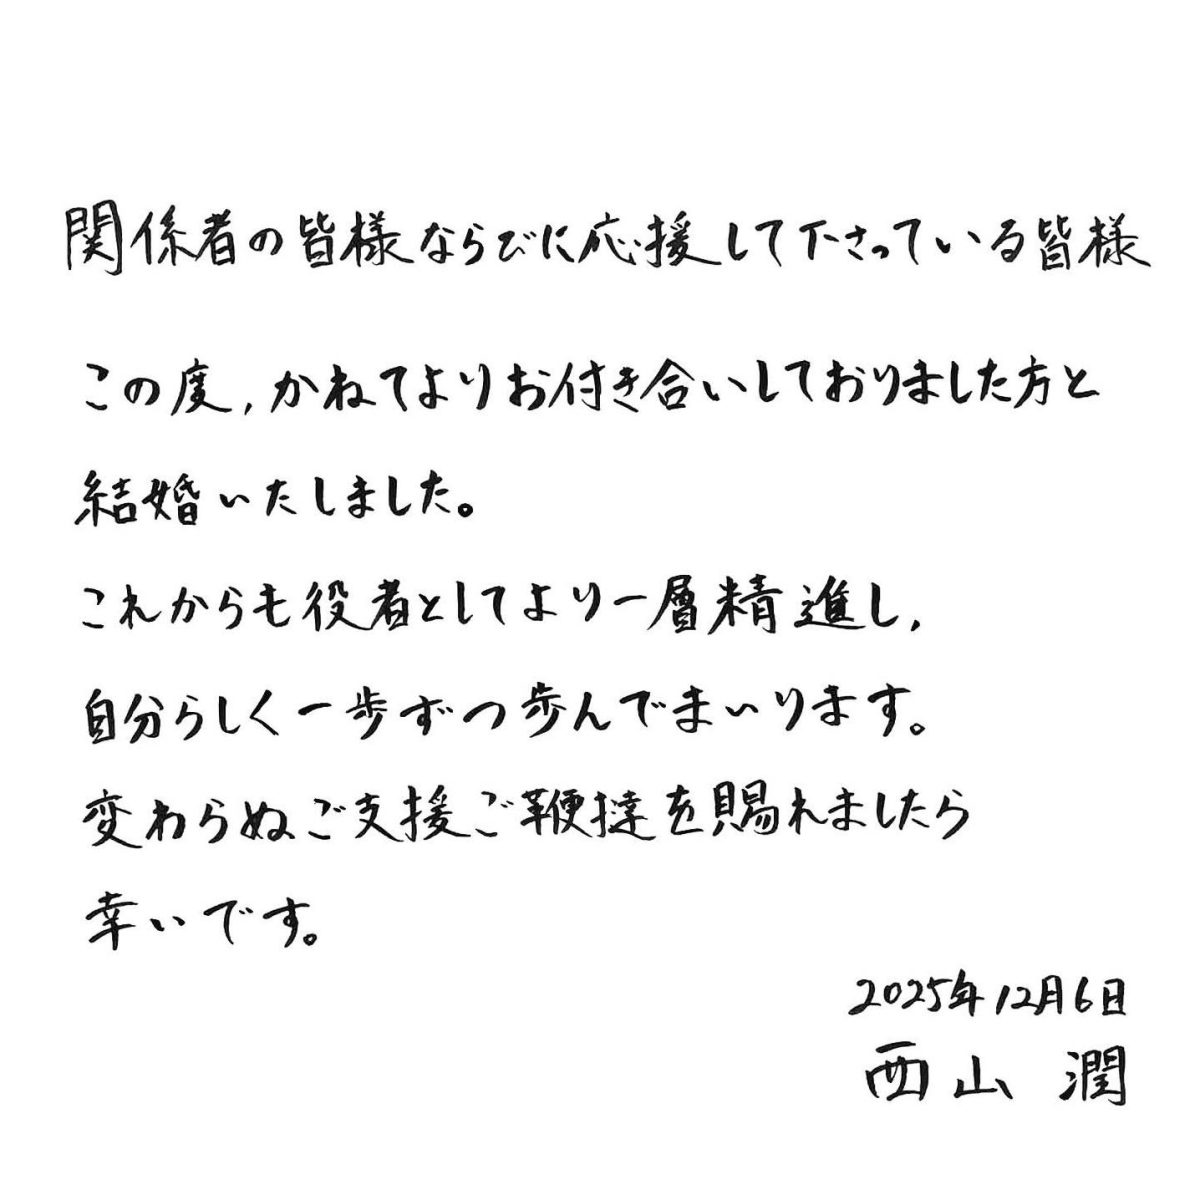 関係者の皆様ならびに応援して下さっている皆様
この度，かねてよりお付き合いしておりました方と
結婚いたしました。
これからも役者としてより一層精進し，
自分らしく一歩ずつ歩んでまいります。
変わらぬご支援ご鞭撻を賜れましたら
幸いです。
2025年12月6日
西山 潤